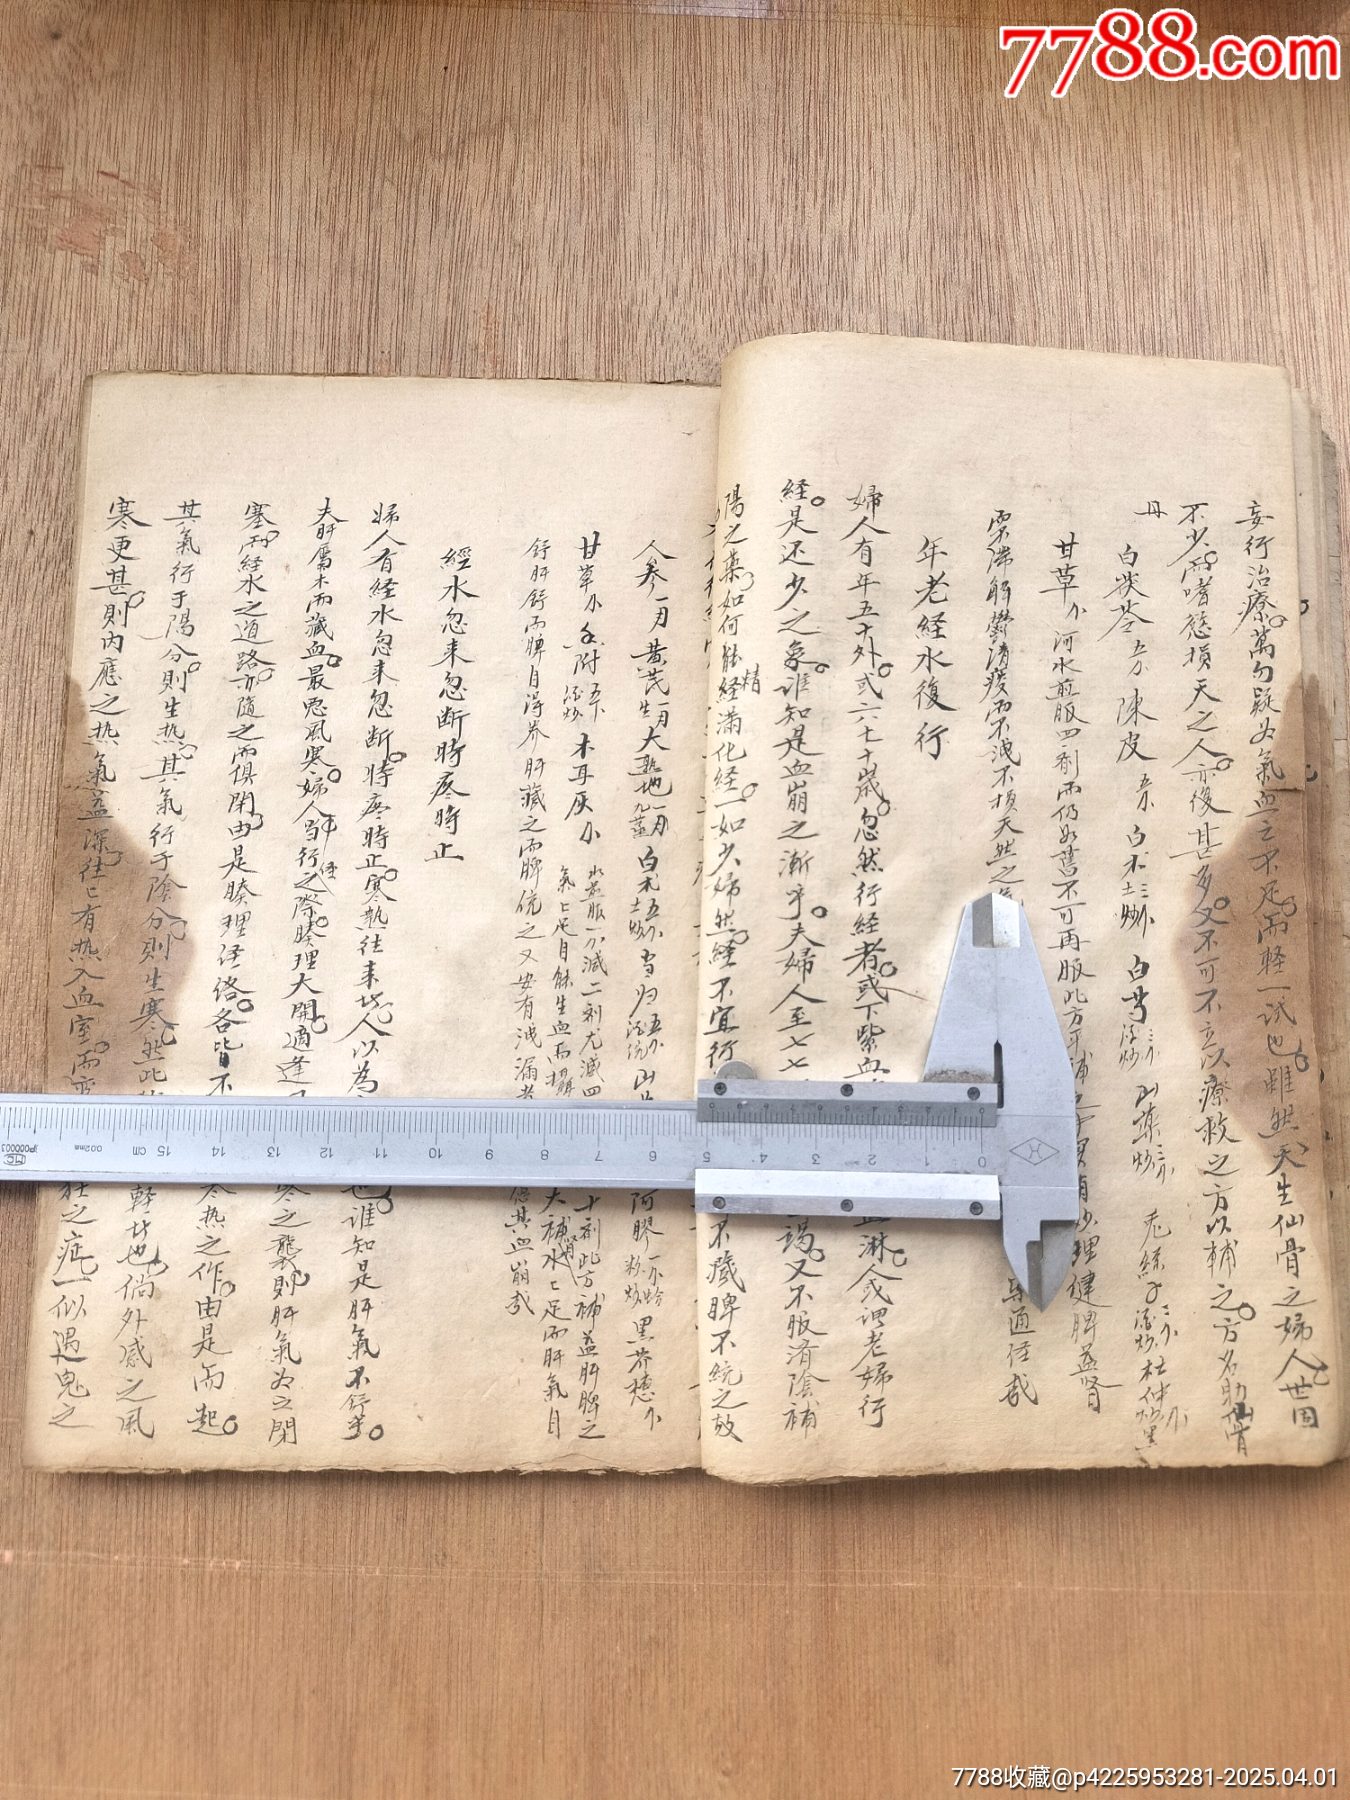 7788.com
妄行治療萬勿疑為氣血之不足而輕一試也雖然天生仙骨之婦人世固
不少而嗜慾損天之人亦復甚多又不可不立以療救之方以輔之方名助仙骨
丹
白茯苓五分陳皮五分白朮三分土炒白芍三分酒炒山藥三分炒兎絲子三分酒炒杜仲一分炒黑
甘草分河水煎服四劑而仍如舊不可再服此方平補之中實有妙理健脾益腎
而不滯解鬱清痰而不洩不損天然之氣通任哉
年老經水復行
婦人有年五十外或六七十歲忽然行經者或下紫血血淋人或謂老婦行
経是还少之象谁知是血崩之漸乎夫婦人至七七竭又不服濟陰補
陽之藥如何能精經滿化经一如少婦然經不宜行不藏脾不統之故
人參一两黄芪生一两大熟地一两九蒸白术五分土炒当归五分酒洗山阿膠一分蛤粉炒黑芥穗分
甘草分香附五分酒炒木耳灰分水煎服一分減二剤尤減四十剤此方補益肝脾之
氣氣足自能生血而攝大補腎水水足而肝氣自
舒肝舒而脾自得养肝藏之而脾統之又安有洩漏者倦其血崩哉
經水忽来忽断時疼時止
婦人有经水忽来忽断時疼時止寒熱往来者人以為也谁知是肝氣不舒乎
夫肝屬木而藏血最惡風寒婦人当行经之際腠理大開適逢寒之襲則肝氣為之閉
塞而经水之道路亦隨之而俱閉由是腠理任络各皆不寒热之作由是而起
其氣行于陽分則生热其氣行于陰分則生寒然此輕者也倘外感之風
寒更甚則内應之热氣益深往往有热入血室而变狂之症一似遇鬼之
7788收藏@p4225953281-2025.04.01